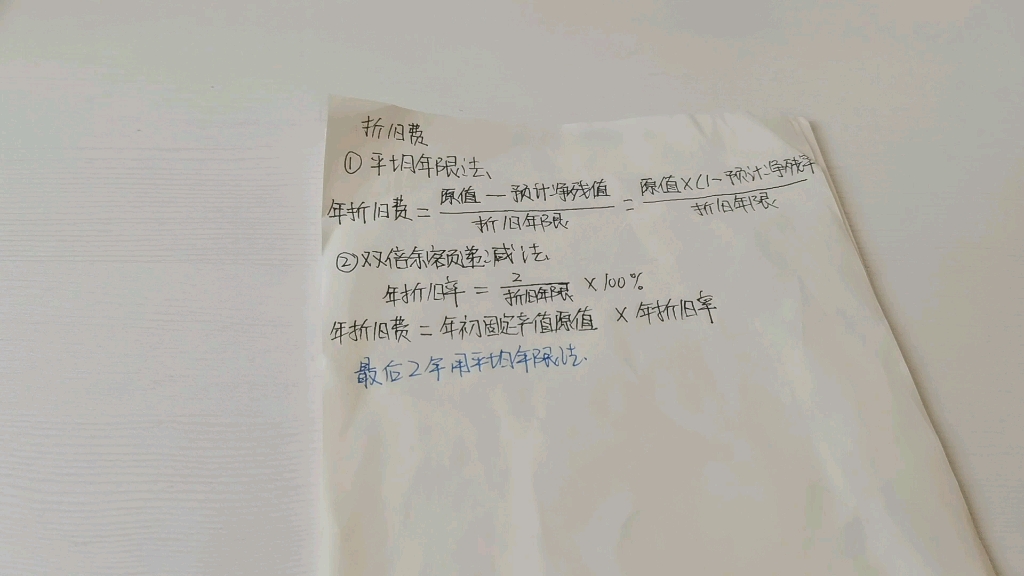 折旧费
①平均年限法、
年折旧费 = (原值 — 预计净残值)/折旧年限 = 原值×(1-预计净残率/折旧年限
②双倍余额递减法
年折旧率 = 2/折旧年限 × 100%
年折旧费 = 年初固定率值原值 × 年折旧率
最后2年用平均年限法.